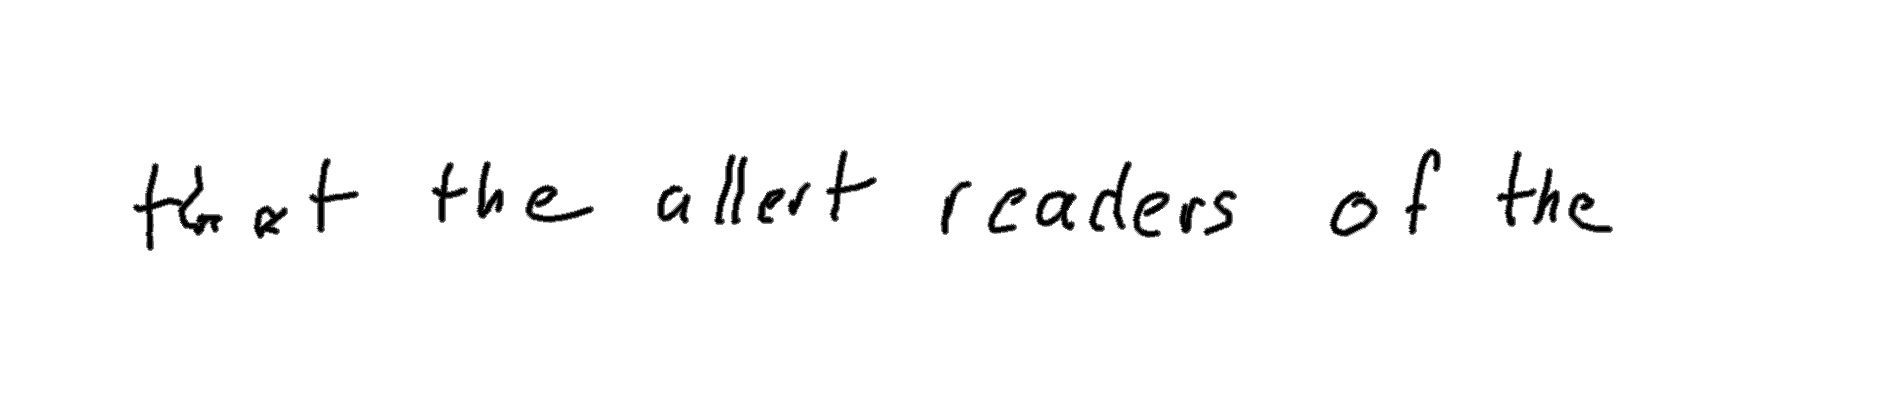 that the allert readers of the